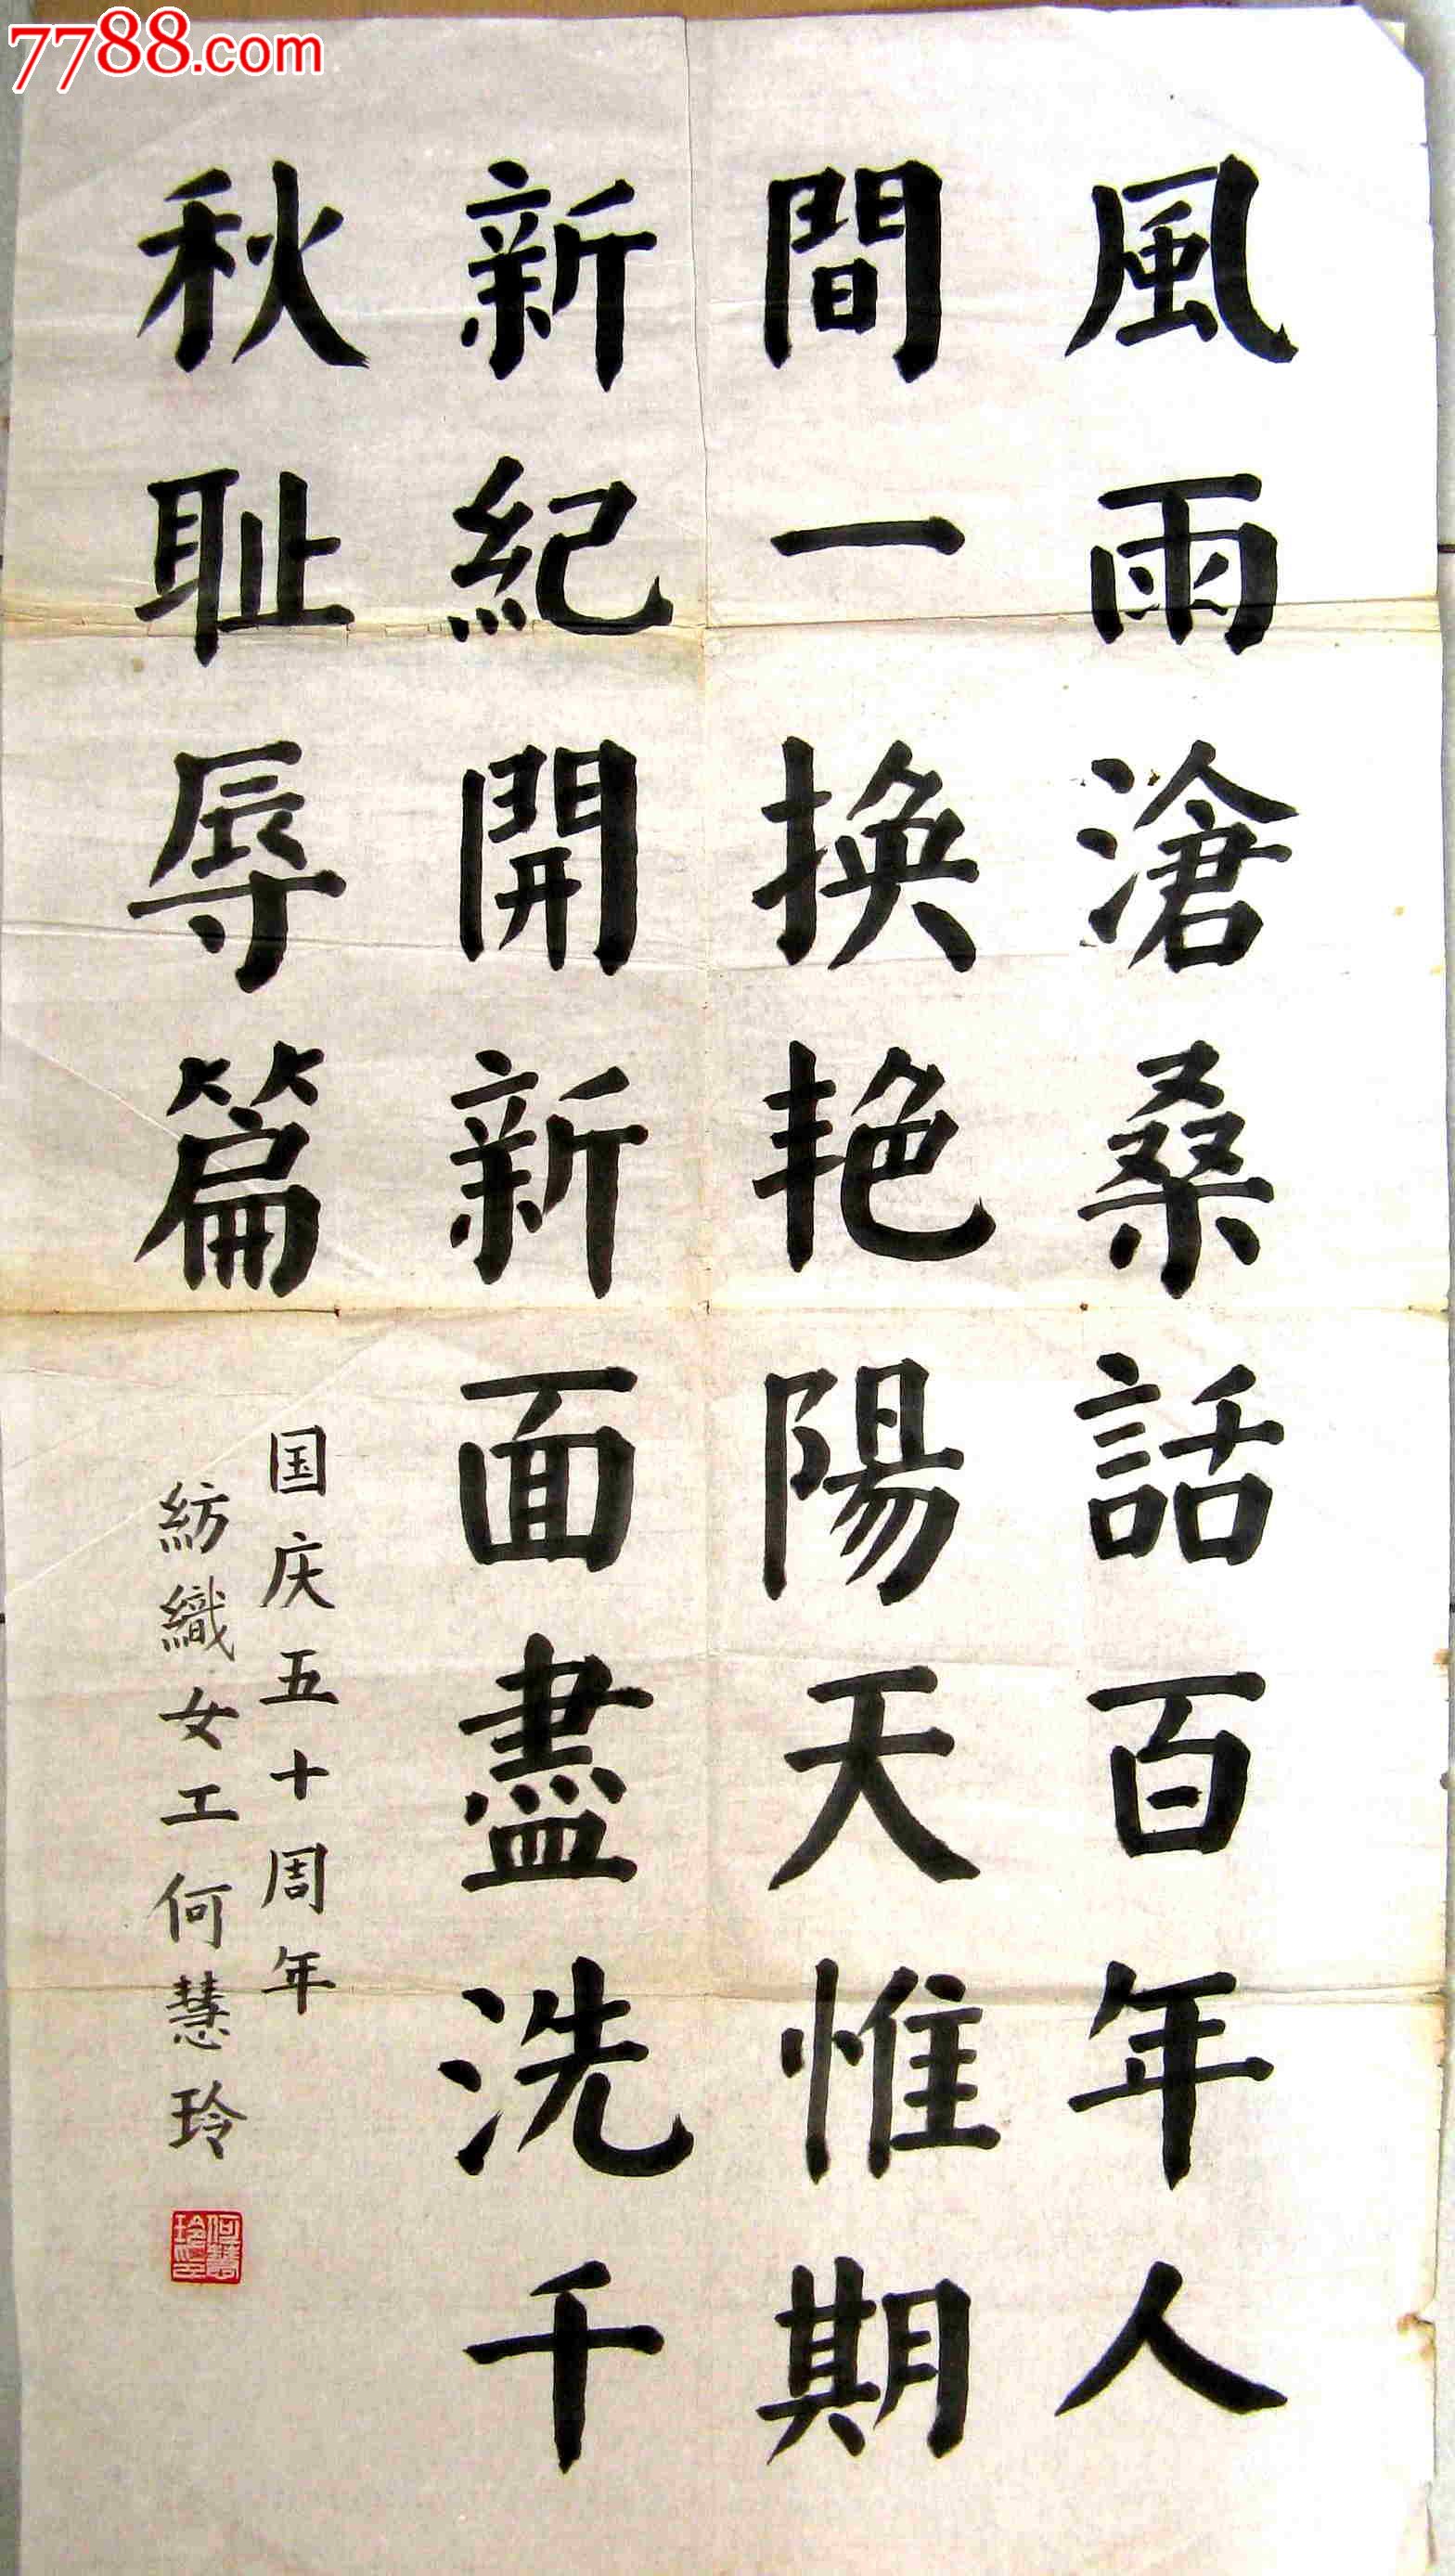 7788.com
風雨滄桑話百年人
間一換艳陽天惟期
新紀開新面盡洗千
秋耻辱篇
国庆五十周年
紡織女工何慧玲